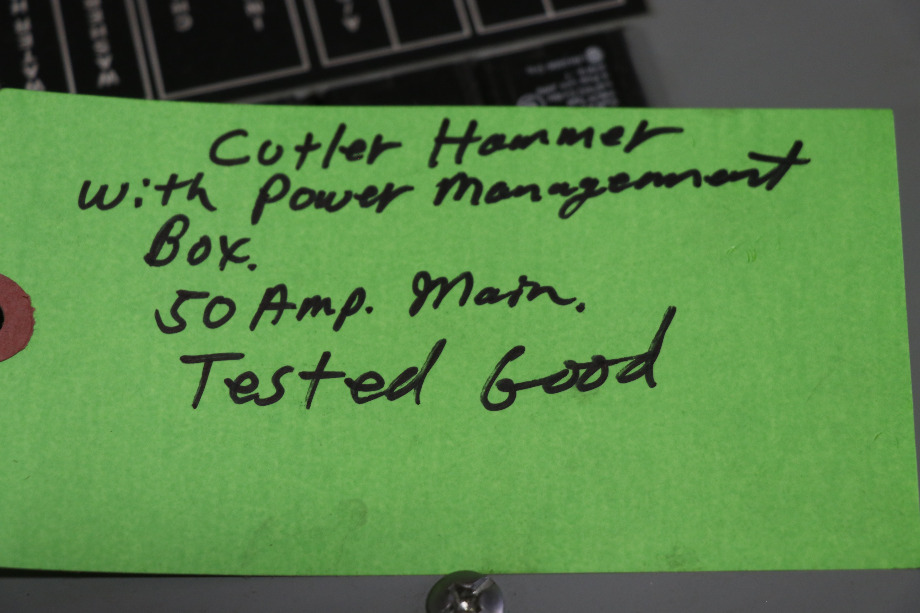 Cutler Hammer
with Power Management
Box.
50 Amp. Main.
Tested Good